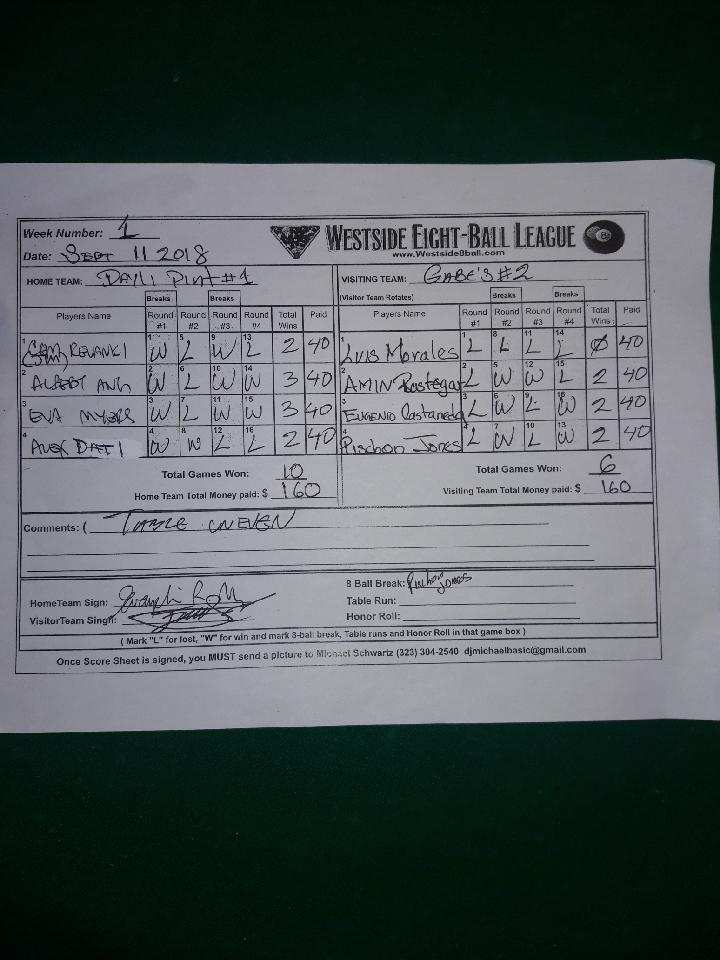 Week Number: 1
WESTSIDE EIGHT-BALL LEAGUE
Date: SEPT 11 2018
www.Westside8ball.com
HOME TEAM: #1
VISITING TEAM: GABE'S #2
Breaks Breaks
(Visitor Team Rotates) Breaks Breaks
Players Name Round #1 Round #2 Round #3 Round #4 Total Wins Paid
Players Name Round #1 Round #2 Round #3 Round #4 Total Wins Paid
1 1 W 5 L 9 W 13 L 2 40
1 Luis Morales 1 L 8 L 11 L 14 L 0 40
2 ALBERT ANG 2 W 6 L 10 W 14 W 3 40
2 AMIN Rastegar 2 L 5 W 12 W 15 L 2 40
3 EVA MYERS 3 W 7 L 11 W 15 W 3 40
3 EUGENIO Castaneda 3 L 6 W 9 L 16 W 2 40
4 ALEX 4 W 8 W 12 L 16 L 2 40
4 Pischon Jones 4 L 7 W 10 L 13 W 2 40
Total Games Won: 10
Total Games Won: 6
Home Team Total Money paid: $ 160
Visiting Team Total Money paid: $ 160
Comments: ( TABLE UNEVEN
8 Ball Break: Pischon Jones
HomeTeam Sign:
Table Run:
VisitorTeam Singh:
Honor Roll:
( Mark "L" for lost, "W" for win and mark 8-ball break, Table runs and Honor Roll in that game box )
Once Score Sheet is signed, you MUST send a picture to Michael Schwartz (323) 304-2540 djmichaelbasic@gmail.com